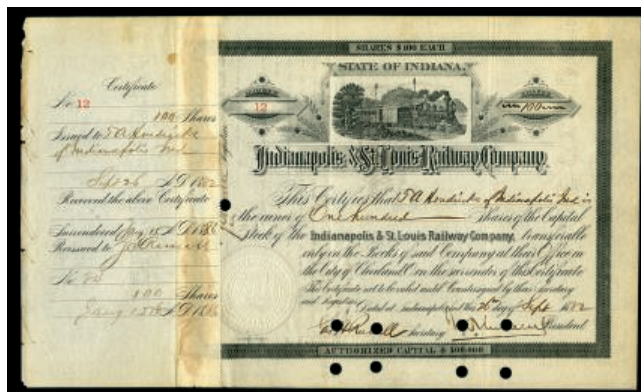 Certificate
No 12
100 Shares
Issued to T A Hendricks
of Indianapolis Ind
Sept 26 A D 1882
Received the above Certificate
Surrendered Jany 15 A D 1886
Reissued to
No
100 Shares
Jany 15th A D 1886
SHARES $100 EACH
STATE OF INDIANA.
12
100
Indianapolis & St. Louis Railway Company
This Certifies that T A Hendricks of Indianapolis Ind is
the owner of One hundred Shares of the Capital
stock of the Indianapolis & St. Louis Railway Company, transferable
only on the Books of said Company at their Office in
the City of Cleveland O. on the surrender of this Certificate
This Certificate not to be valid until Countersigned by their Secretary
and
Dated at Indianapolis Ind this 26th day of Sept 1882
Secretary President
AUTHORIZED CAPITAL $500,000